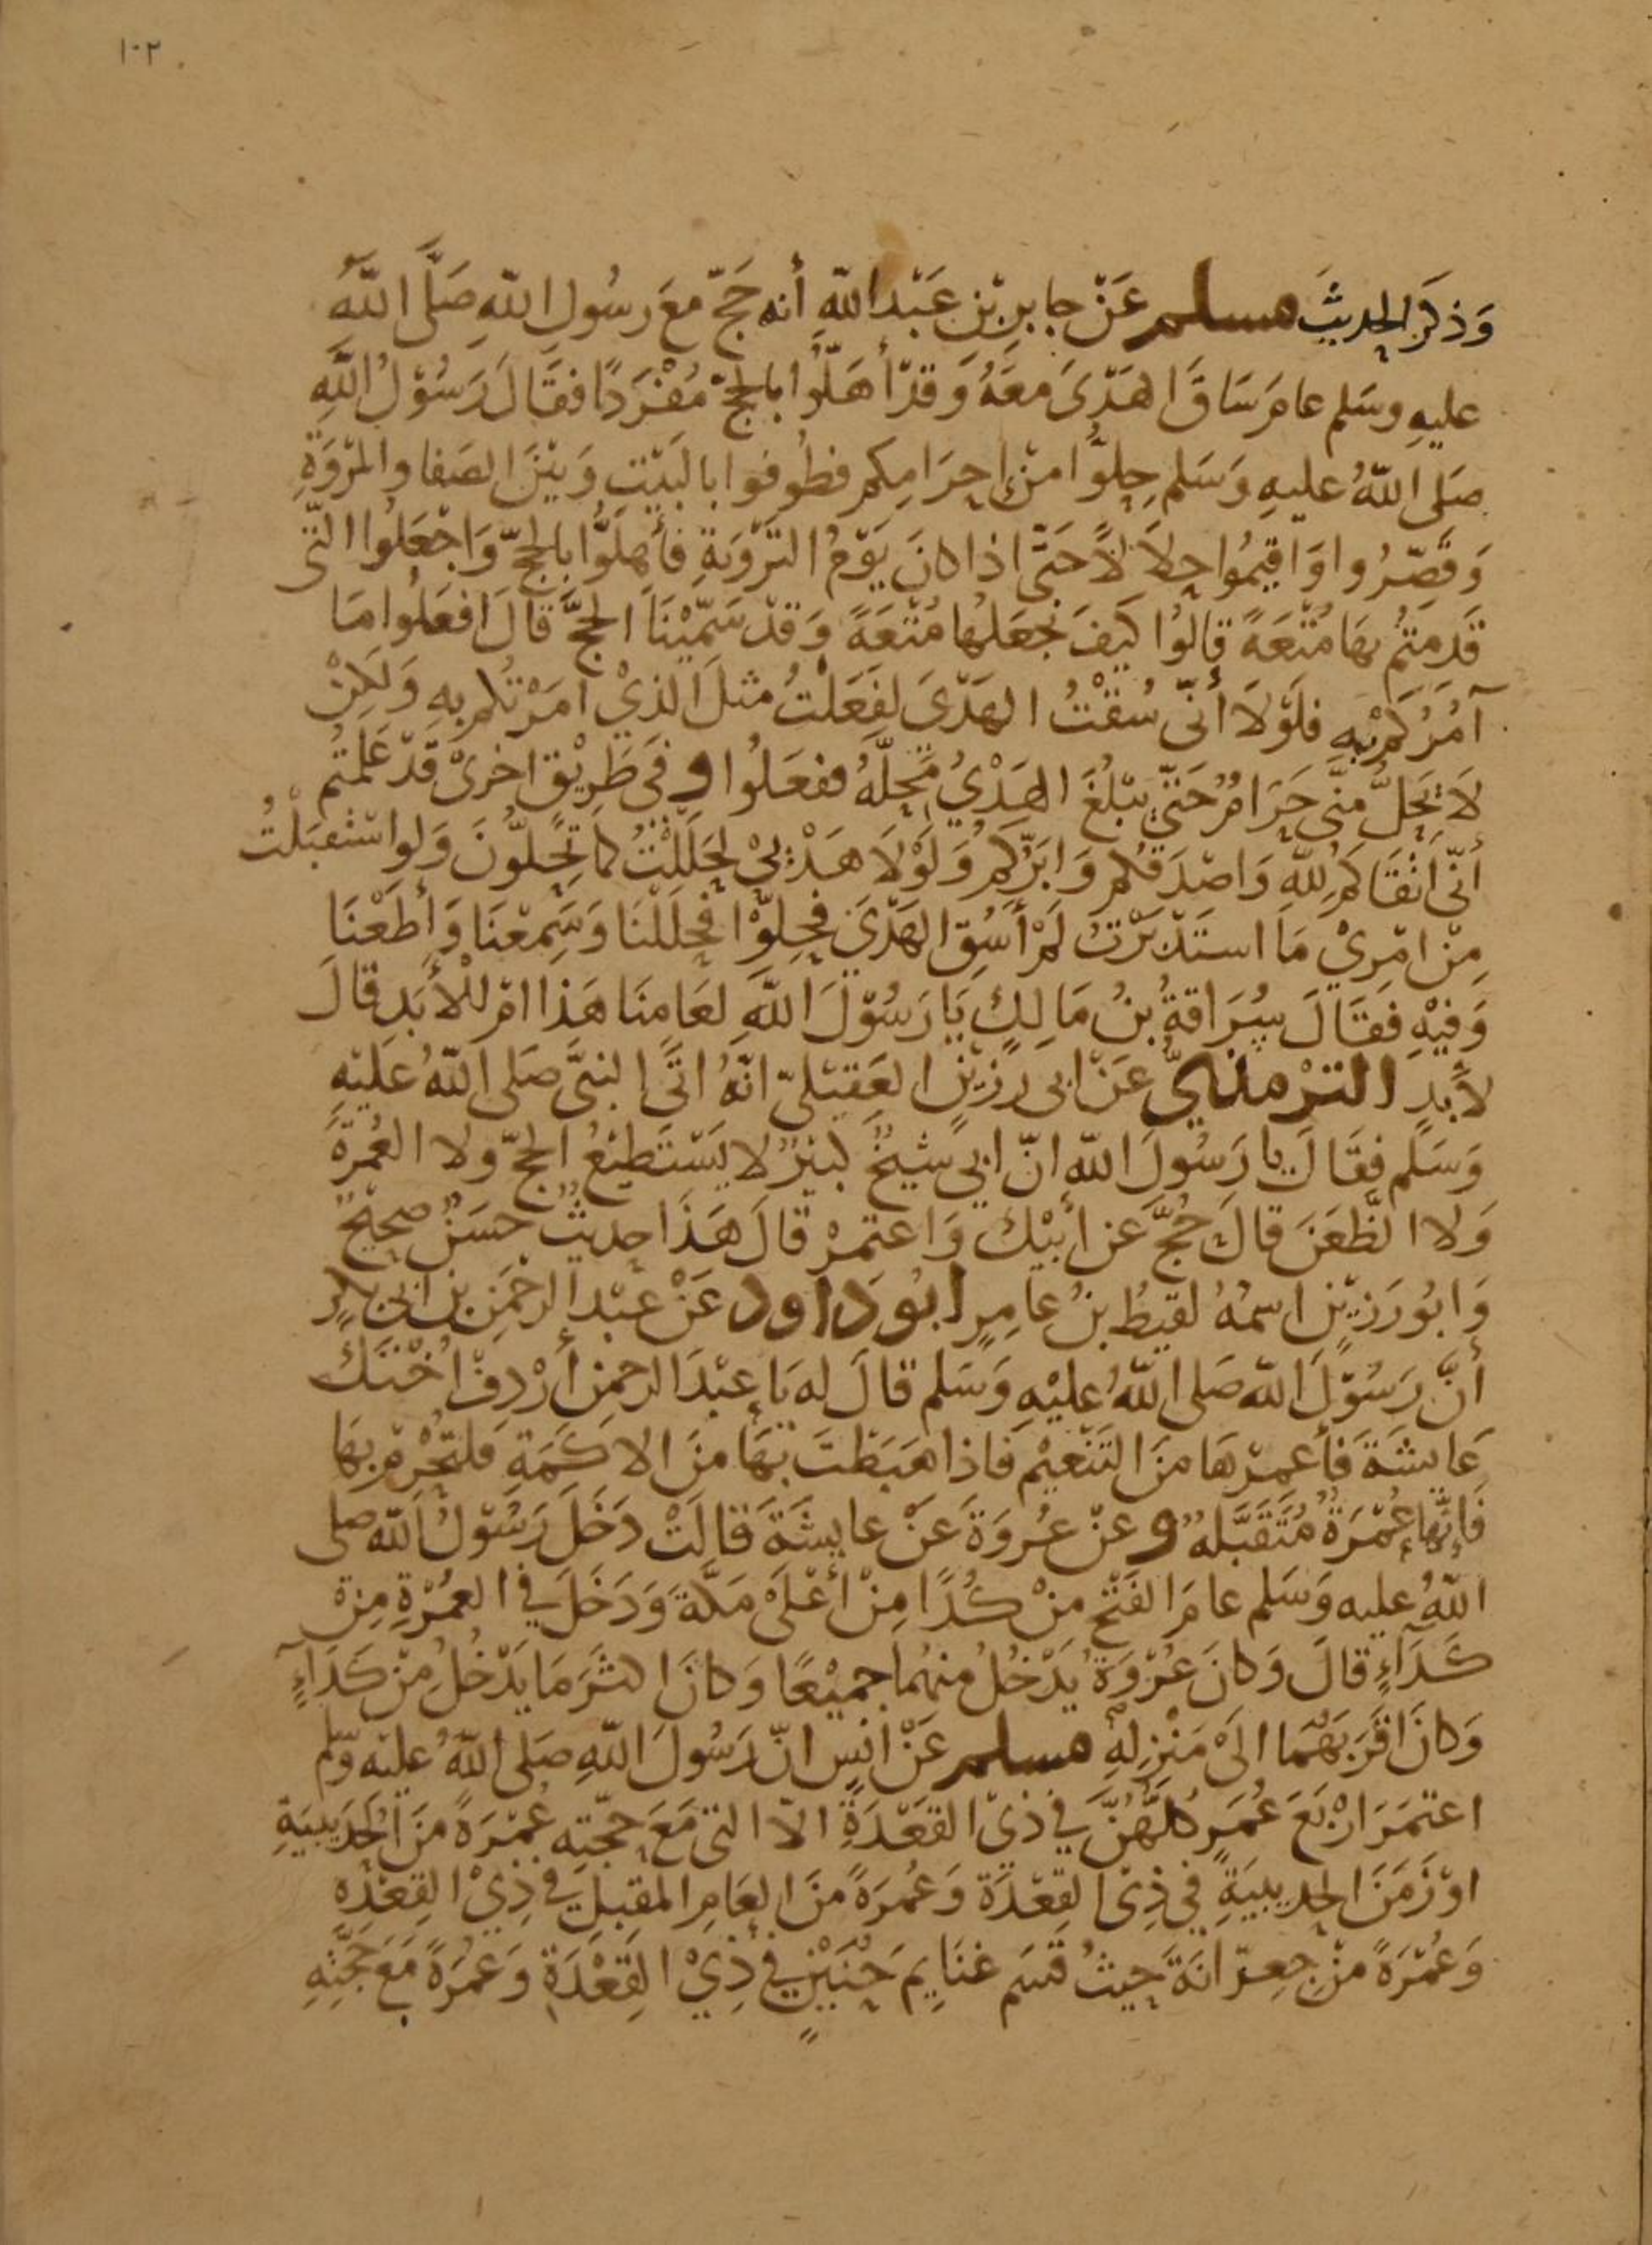 ١٠٢
وَذكَرَ الحديثَ مسلم عَنْ جابرِ بْنِ عَبْد اللّهِ أنه حَجّ معَ رسُولِ اللّهِ صَلَّى اللّهُ
عليهِ وسَلم عامَ سَاقَ الهَدْىَ معَهُ وَقدْ أهَلُّوا بالحجّ مُفْرَدًا فقَالَ رَسُوْلُ اللّهِ
صَلى اللّهُ عليهِ وَسَلم حِلوُّا منْ اِحرَامِكم فطُوفوا بالبَيْتِ وَبَيْنَ الصَفا والمرْوَةِ
وَقصّرُوا وَاقيمُوا حِلاَلاً حَتَّى اذا كانَ يَوْمُ التَرْوِيَةِ فأَهِلوُّا بالحجّ وَاجْعَلُوا التّى
قَدِمتمُ بهَا مُتْعَةً قالوُا كَيفَ نجْعَلهُا مُتْعَةً وَقدْ سَمّيْنَا الحجَّ قالَ افعَلوُا مَا
آمُرُكُمْ بِهِ فلَوْلاَ أنّى سُقْتُ الهَدْىَ لفَعَلْتُ مثلَ الذيْ امَرْتُكم بهِ وَلكِنْ
لاَ يَحِلُّ مِنّى حَرَامٌ حَتّي يَبْلُغَ الهَدْيُ مَحِلّهُ ففعَلُوا وَفى طَرِيْقٍ اخرىْ قَدْ عَلمتُم
أنّى اتْقَاكُم لِلّهِ وَاصْدَقكم وَابَرّكُم وَلَوْلاَ هَدْيِيْ لحَلَلْتُ كما تَحِلّوُنَ وَلَو استْقبَلْتُ
مِنْ امْرِيْ مَا استَدْبَرْتُ لَمْ أَسُقِ الهَدْيَ فحِلوّا فحَلَلْنَا وَسَمِعْنَا وَأطَعْنَا
وَفيْهِ فقَالَ سُرَاقةُ بنُ مَالِكٍ يَا رَسُوْلَ اللّهِ لعَامِنَا هَذا امْ للأَبَدِ قالَ
لأَبدٍ الترْمذيّ عَنْ ابى رزيْنٍ العَقيْلىّ انّهُ اتَى النبىَّ صَلى اللّهُ عَليْهِ
وَسَلم فقَالَ يا رَسُولَ اللّه انّ ابى شيْخٌ كبيْرٌ لا يَسْتَطيْعُ الحجّ ولا العُمْرَةَ
وَلا الظّعَنَ قالَ حُجَّ عن أبيْكَ وَاعتمرْ قالَ هَذا حديثٌ حسَنٌ صحيْحٌ
وَابُو رَزيْنٍ اسمُهُ لقيطُ بنُ عامِرٍ ابُو دَاوُد عَنْ عَبْد الرحْمَنِ بن ابى بكرٍ
أنَّ رَسُوْلَ اللّه صَلى اللّهُ عليْهِ وَسَلم قالَ له يَا عبْدَ الرحمن أرْدِفْ اُخْتَكَ
عَايشَةَ فَأعمِرْهَا مِنَ التَنْعيْم فَاذا هَبَطْتَ بهَا مِنَ الاكَمَةِ فلتحْرِمْ بهَا
فَإنّهَا عُمْرَةٌ مُتَقبَّلهٌ وَعنْ عرُوَةَ عَنْ عايشَةَ قالَتْ دَخَلَ رَسُوْلُ اللّه صلى
اللّهُ عليه وَسَلم عامَ الفتْحِ مِنْ كُدًا مِنْ أعْلَىْ مَكّةَ وَدَخَلَ في العُمْرَةِ مِنْ
كَدَآءٍ قالَ وَكانَ عُرْوَةُ يَدْخُلُ منهُما جميْعًا وَكانَ اكثرَ مَا يَدْخُلُ مِنْ كَدَاءٍ
وَكانَ اقرَبهُمَا الىَ مَنْزِلِهِ مسلم عَنْ انسٍ انّ رَسُولَ اللّهِ صَلى اللّهُ عليْه وسّلم
اعتمَرَ ارْبَعَ عُمَرٍ كلّهُنّ في ذى القعَدَةِ الاّ التى مَعَ حجّتِهِ عُمْرَةً منَ الحُدَيبيَةِ
اوْ زَمَنَ الحديبيَةِ في ذِى القِعْدَة وَعُمرَةً منَ العَامِ المقبِل في ذِيْ القِعْدَةِ
وَعُمْرَةً مِنْ جعِرّانَةَ حيثُ قسَم غنَايِمَ حُنَيْنٍ في ذِيْ القِعْدَةِ وَعُمرَةً مَعَ حَجّتِهِ